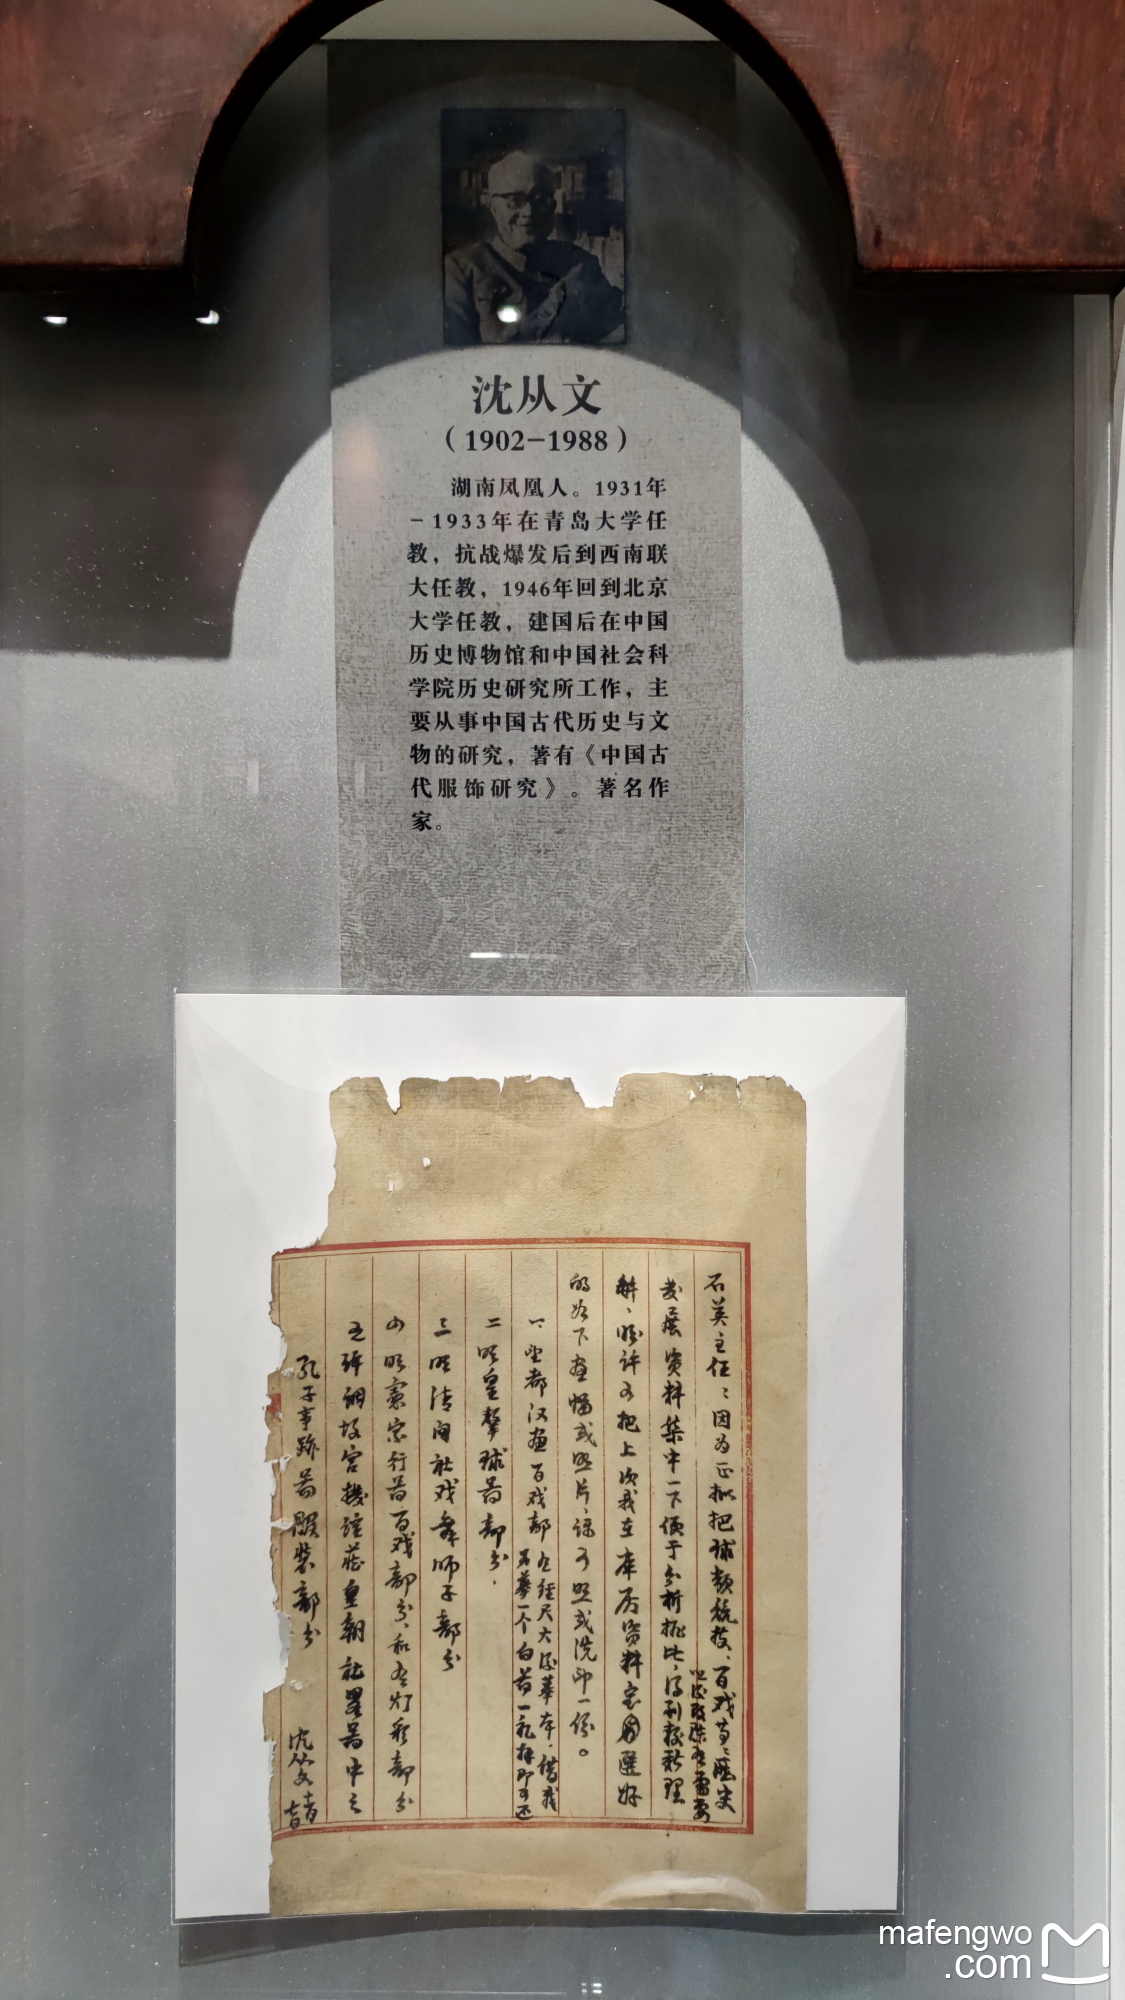 沈从文
（1902-1988）
湖南凤凰人。1931年
-1933年在青岛大学任
教，抗战爆发后到西南联
大任教，1946年回到北京
大学任教，建国后在中国
历史博物馆和中国社会科
学院历史研究所工作，主
要从事中国古代历史与文
物的研究，著有《中国古
代服饰研究》。著名作
家。
石英主任：因为正拟把球类竞技、百戏等等历史
发展资料集中一下便于分析排比，得到较新理
解、
可把上次我在库房资料室
的如下画幅或照片、
可照或洗印一份。
一、
都汉画百戏部
二 明皇击球图部分.
三 明清
社戏舞师子部分
四 明宪宗行图百戏部分、和
灯彩部分
五
故宫
藏皇朝
图中之
孔子事迹图服装部分
沈从文
mafengwo
.com